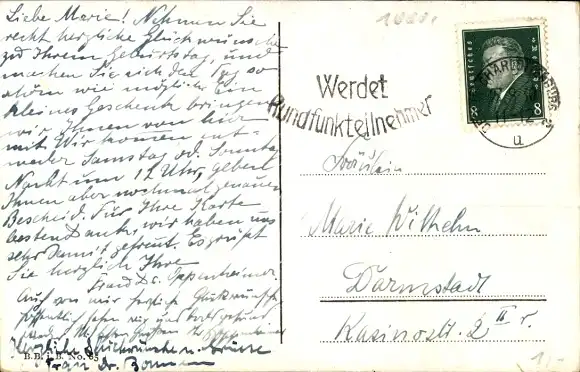 Liebe Marie! Nehmen Sie
recht herzliche Glückwünsche
zu Ihrem Geburtstag, und
machen Sie sich den Tag so
schön wie möglich. Ein
kleines Geschenk bringen
wir Ihnen von hier
mit. Wir kommen ent-
weder Samstag od. Sonntag
Nacht um 12 Uhr, geben
Ihnen aber nochmal genauen
Bescheid. Für Ihre Karte
besten Dank, wir haben uns
sehr damit gefreut. Es grüsst
Sie herzlich Ihre
Frau Dr. Oppenheimer.
Auch von mir herzlich Glückwünsche
Herzliche Glückwünsche u. Grüsse
Frau Dr.
B.B. i. B. No. 65
Werdet
Rundfunkteilnehmer
Deutsches Reich
8 8
CHARLOTTENBURG
u
Fräulein
Marie Wilhelm
Darmstadt
Kasinostr. 2 II r.
1,-